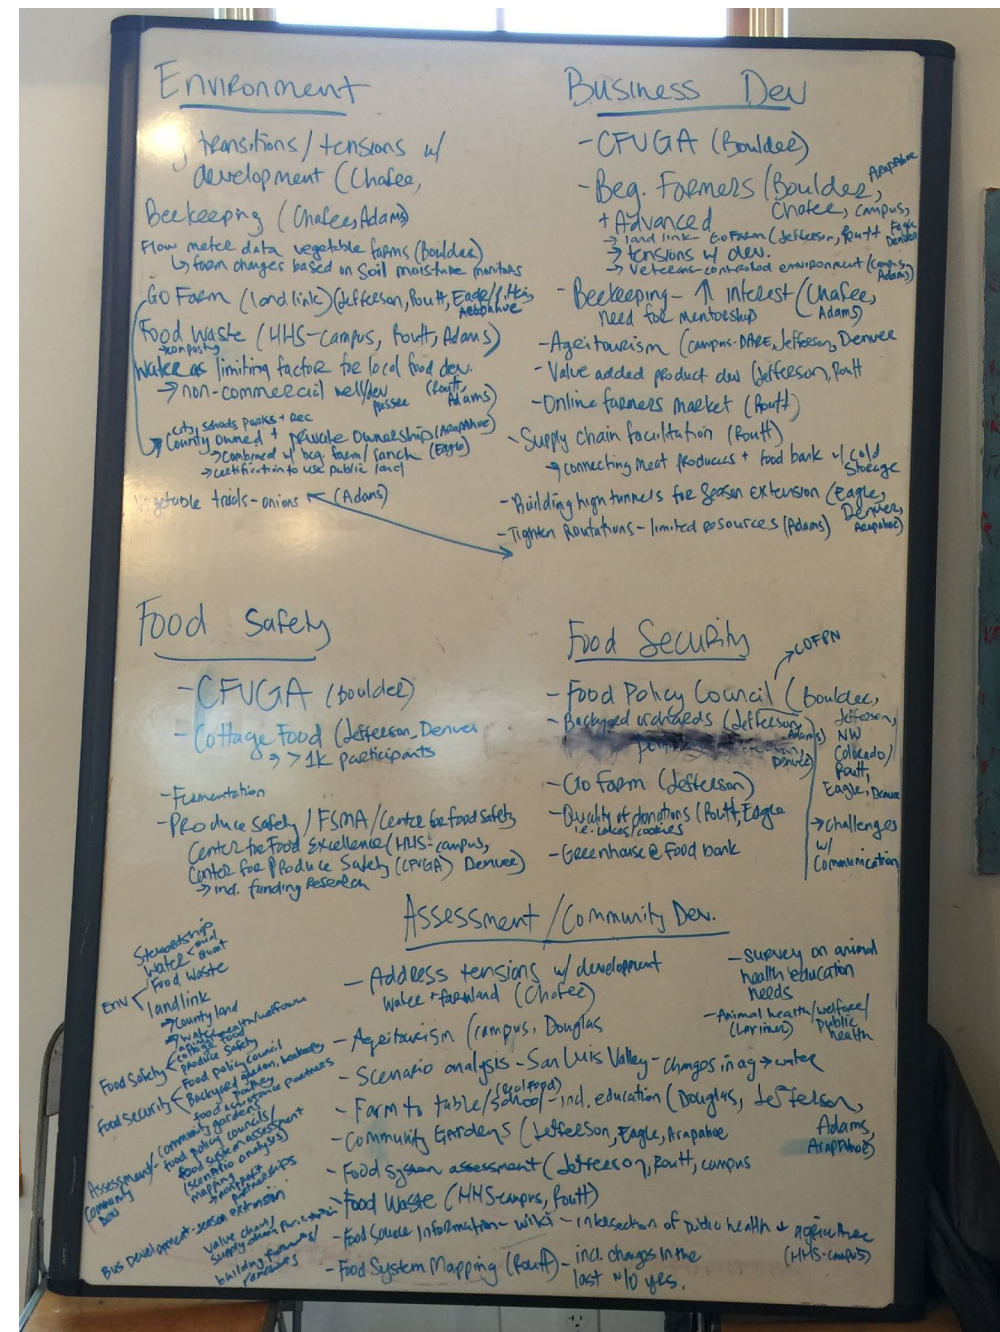 Environment
transitions/tensions w/
development (Chafee,
Beekeeping (Chafee, Adams)
Flow meter data vegetable farms (Boulder)
↳ farm changes based on soil moisture monitors
Go Farm (land link) (Jefferson, Routt, Eagle/Pitkin,
Arapahoe
Food Waste (HHS-campus, Routt, Adams)
→ composting
Water as limiting factor for local food dev.
→ non-commercial well/dev
(Routt,
Adams)
city, schools, parks + rec
County owned + private ownership (Arapahoe)
→ combined w/ beg. farm/ranch (Eagle)
→ certification to use public land
Vegetable trials - onions (Adams)
Business Dev
- CFVGA (Boulder)
- Beg. Farmers (Boulder, Arapahoe
+ Advanced Chafee, campus,
→ land link - Go Farm (Jefferson, Routt Eagle
Denver
→ tensions w/ dev.
→ Veterans-controlled environment (campus-
Adams)
- Beekeeping - ↑ interest (Chafee,
need for mentorship Adams)
- Agritourism (campus-DARE, Jefferson, Denver
- Value added product dev (Jefferson, Routt
- Online farmers market (Routt)
- Supply chain facilitation (Routt)
→ connecting meat producers + food bank w/ cold
storage
- Building high tunnels for season extension (Eagle,
Denver,
Arapahoe)
- Tighten Routations - limited resources (Adams)
Food Safety
- CFVGA (Boulder)
- Cottage Food (Jefferson, Denver
↳ >1k participants
- Fermentation
- Produce Safety/FSMA/Center for food safety
Center for Food Excellence (HHS-campus,
Center for Produce Safety (CFVGA) Denver)
→ incl. funding research
Food Security
→ COFPN
- Food Policy Council (Boulder,
Jefferson,
NW
Colorado/
Routt,
Eagle, Denver
→ challenges
w/
communication
- Backyard orchards (Jefferson,
Adams)
Denver)
- Go Farm (Jefferson)
- Quality of donations (Routt, Eagle
i.e. cakes/cookies
- Greenhouse @ Food bank
Assessment/Community Dev.
- Address tensions w/ development
water + farmland (Chafee)
- Agritourism (campus, Douglas
- Scenario analysis - San Luis Valley - changes in ag → water
(local food)
- Farm to table/school - incl. education (Douglas, Jefferson,
Adams,
Arapahoe)
- Community Gardens (Jefferson, Eagle, Arapahoe
- Food system assessment (Jefferson, Routt, campus
- Food Waste (HHS-campus, Routt)
- Food Source Information - wiki - intersection of public health + agriculture
(HHS-campus)
- Food System Mapping (Routt) - incl. changes in the
last ~10 yrs.
- survey on animal
health education
needs
- Animal health/welfare/
(Larimer) public
health
Stewardship
Env < Water < qual
quant
Food Waste
landlink
→ County land
→ water
animal health/welfare
Food Safety < cottage food
produce safety
Food Security < Food policy council
Backyard garden, beekeeping
poultry
food assistance partners
Assessment/
Community
Dev
- community gardens
food policy councils/
food system assessment
(scenario analysis)
mapping
→ nonprofit
partnerships
Bus Development - season extension
value chain/
supply chain
building farmers/
ranchers